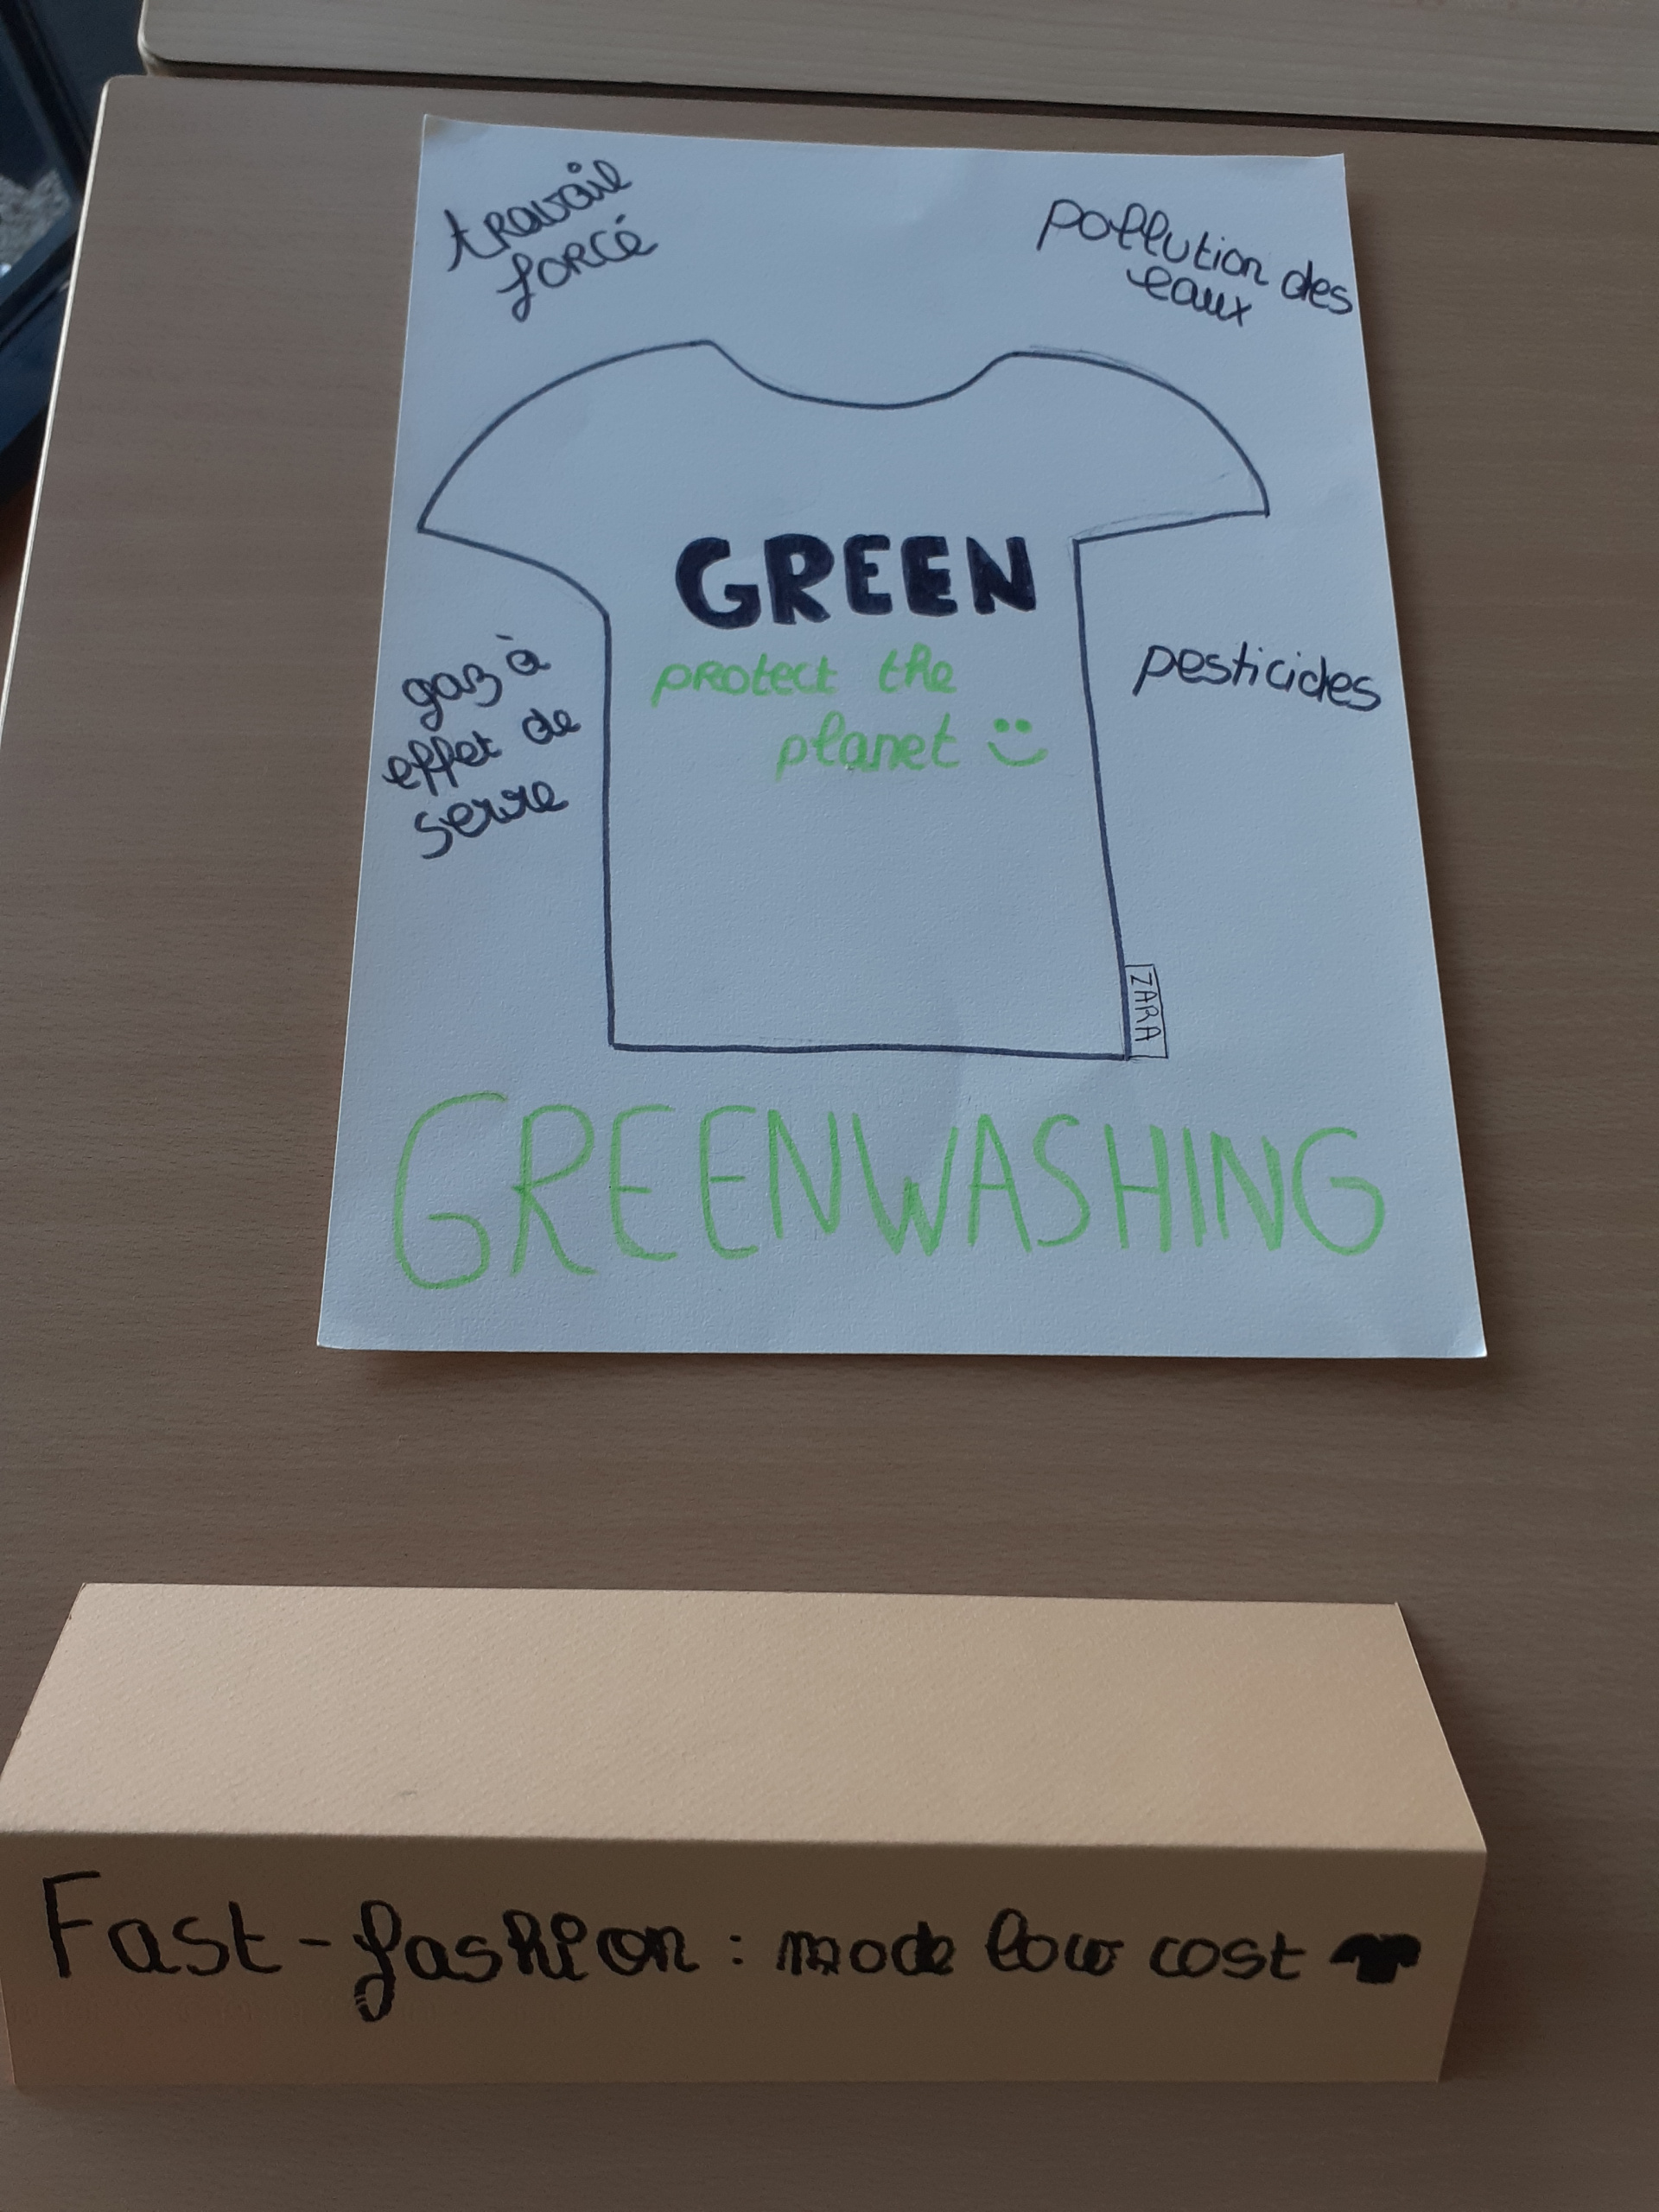 travail
forcé
pollution des
eaux
GREEN
protect the
planet
gaz à
effet de
serre
pesticides
ZARA
GREENWASHING
Fast-fashion : mode low cost